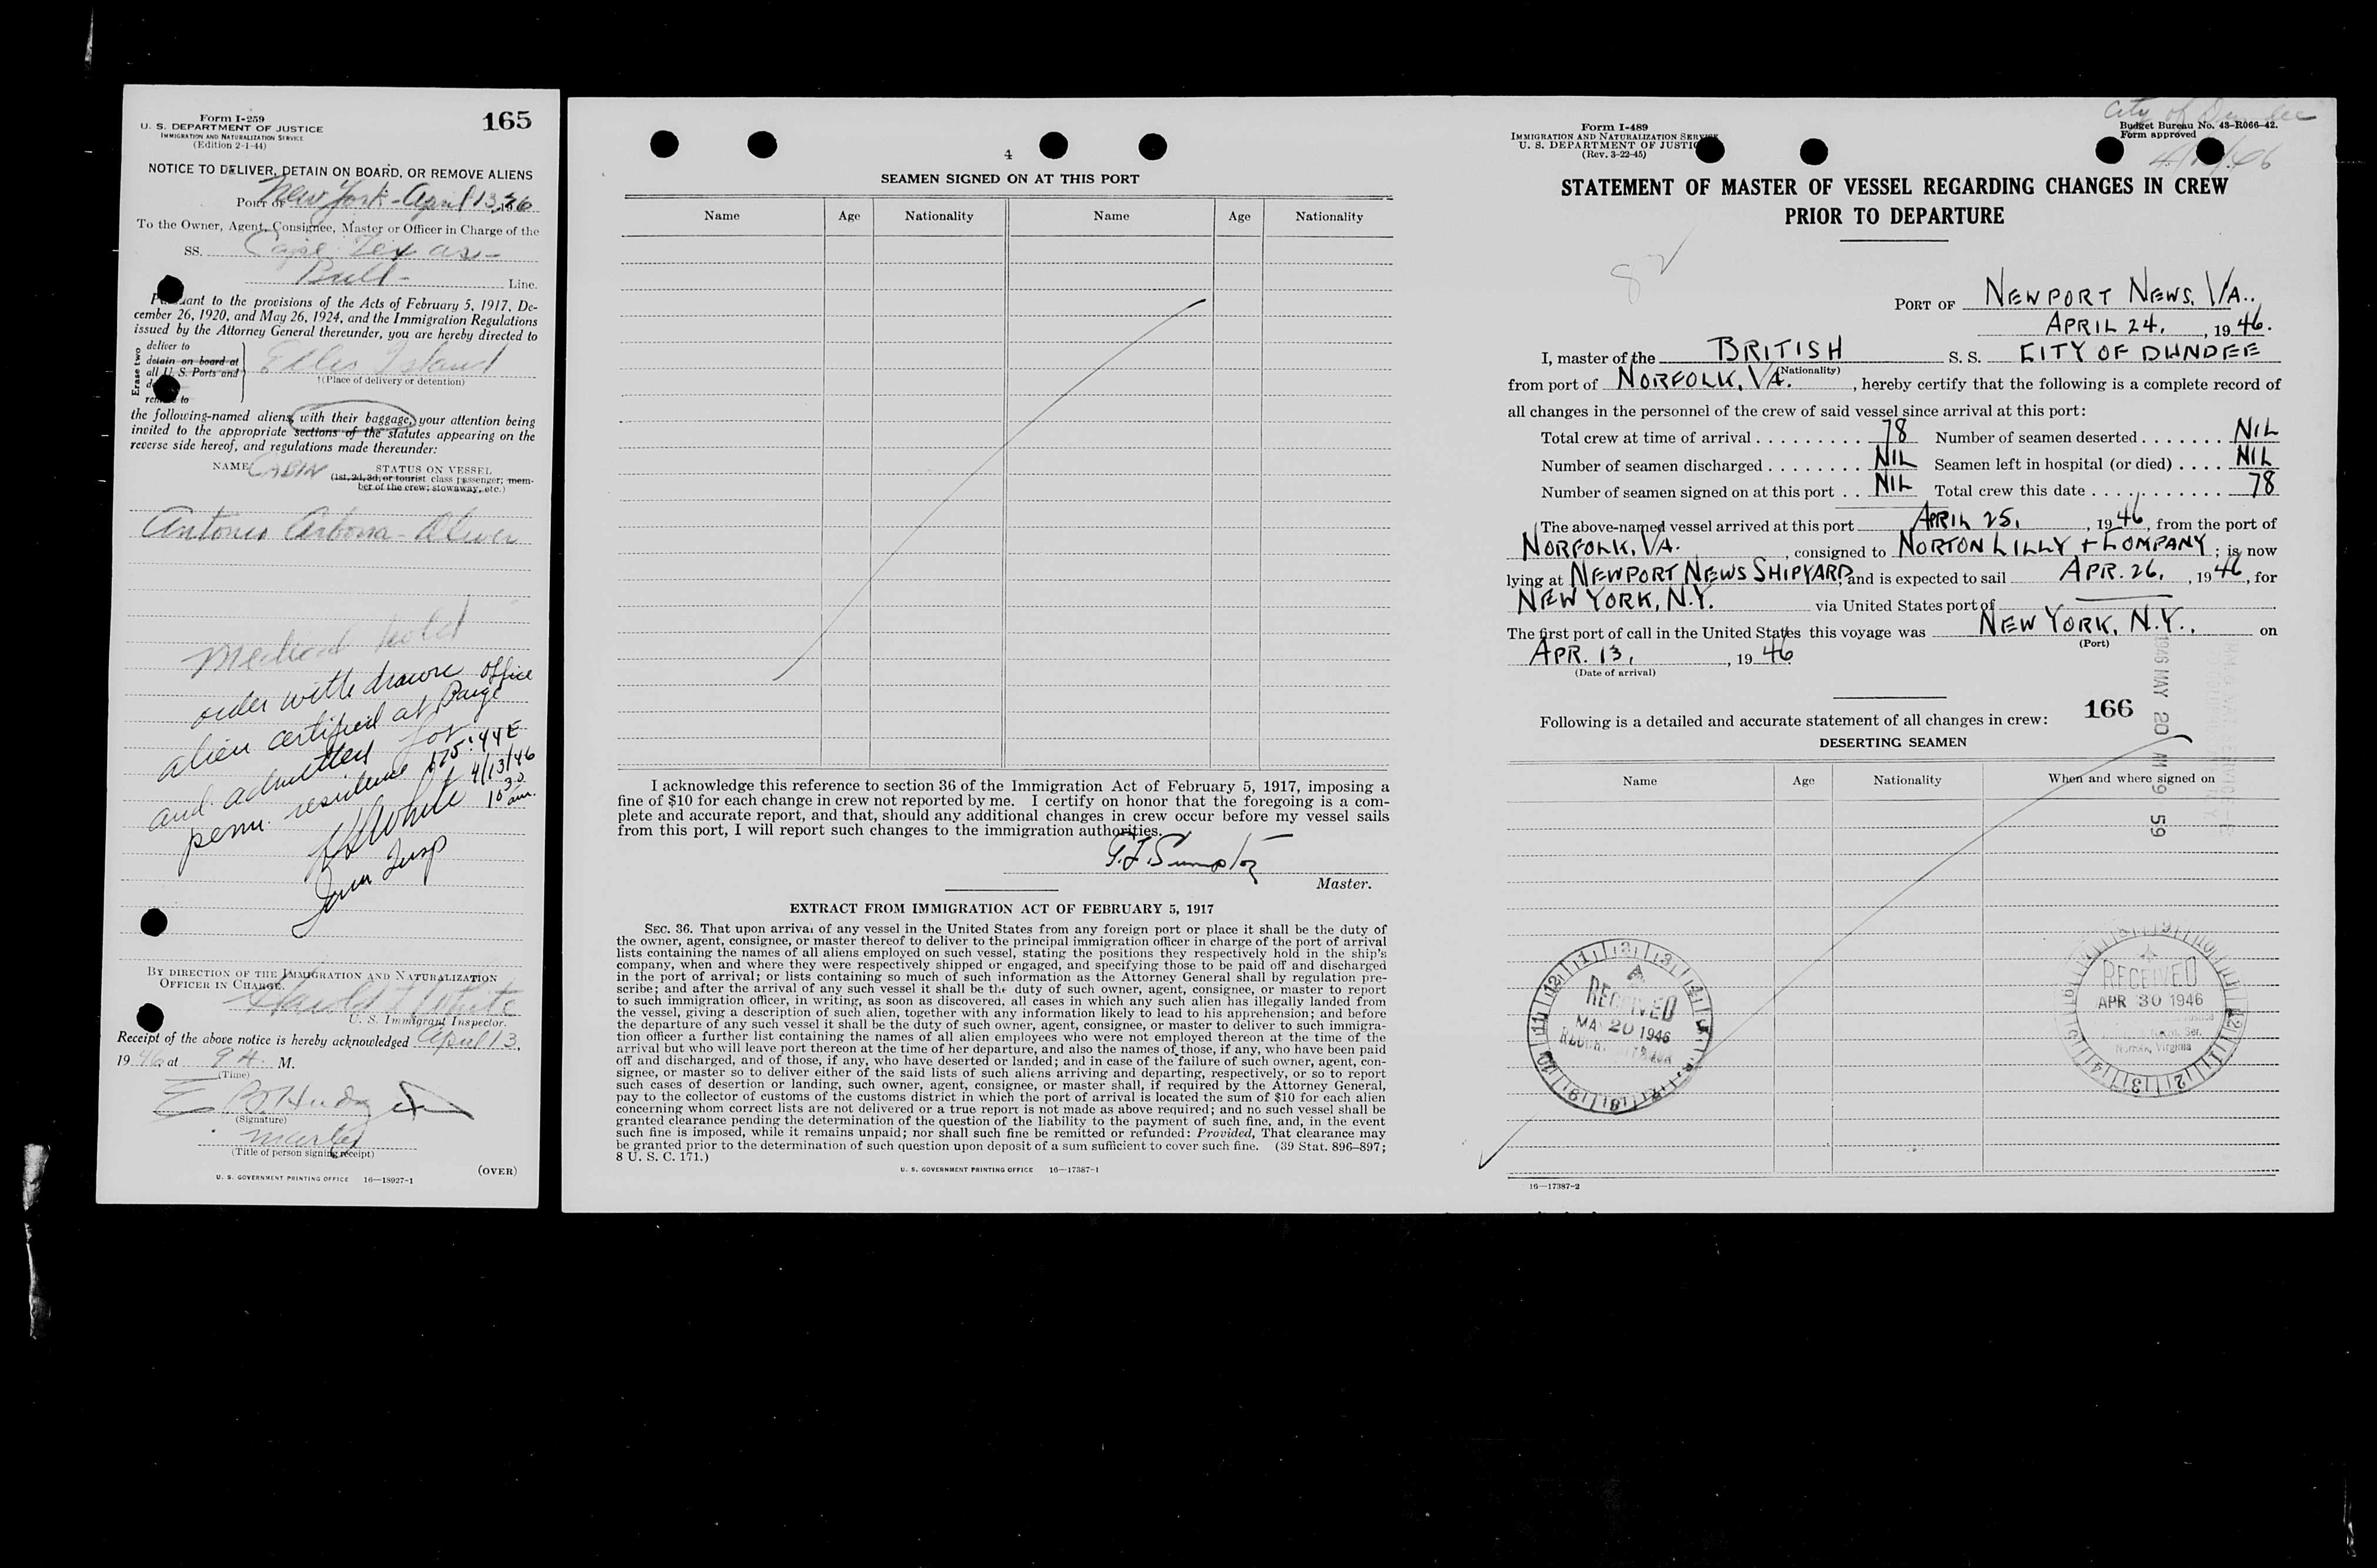 Form I-259
U. S. DEPARTMENT OF JUSTICE
IMMIGRATION AND NATURALIZATION SERVICE
(Edition 2-1-44)
165
NOTICE TO DELIVER, DETAIN ON BOARD, OR REMOVE ALIENS
PORT OF New York - April 13, 1946
To the Owner, Agent, Consignee, Master or Officer in Charge of the
SS. Cape Texas -
Bull - Line.
Pursuant to the provisions of the Acts of February 5, 1917, De-
cember 26, 1920, and May 26, 1924, and the Immigration Regulations
issued by the Attorney General thereunder, you are hereby directed to
Erase two
deliver to
detain on board at
all U. S. Ports and
remove to
Ellis Island
†(Place of delivery or detention)
the following-named aliens with their baggage, your attention being
invited to the appropriate sections of the statutes appearing on the
reverse side hereof, and regulations made thereunder:
NAME CABIN STATUS ON VESSEL
(1st, 2d, 3d, or tourist class passenger; mem-
ber of the crew; stowaway, etc.)
Antonio Arbona - Oliver
Medical hold
order withdrawn
alien certified at Barge office
and admitted for
perm. residence 175:44E
H White 4/13/46
10 30 am.
Imm Insp
BY DIRECTION OF THE IMMIGRATION AND NATURALIZATION
OFFICER IN CHARGE.
Harold White
U. S. Immigrant Inspector.
Receipt of the above notice is hereby acknowledged April 13,
1946, at 9 A. M.
(Time)
(Signature)
Master
(Title of person signing receipt)
(OVER)
U. S. GOVERNMENT PRINTING OFFICE 16—18927-1
4
SEAMEN SIGNED ON AT THIS PORT
Name Age Nationality Name Age Nationality
I acknowledge this reference to section 36 of the Immigration Act of February 5, 1917, imposing a
fine of $10 for each change in crew not reported by me. I certify on honor that the foregoing is a com-
plete and accurate report, and that, should any additional changes in crew occur before my vessel sails
from this port, I will report such changes to the immigration authorities.
Master.
EXTRACT FROM IMMIGRATION ACT OF FEBRUARY 5, 1917
SEC. 36. That upon arrival of any vessel in the United States from any foreign port or place it shall be the duty of
the owner, agent, consignee, or master thereof to deliver to the principal immigration officer in charge of the port of arrival
lists containing the names of all aliens employed on such vessel, stating the positions they respectively hold in the ship's
company, when and where they were respectively shipped or engaged, and specifying those to be paid off and discharged
in the port of arrival; or lists containing so much of such information as the Attorney General shall by regulation pre-
scribe; and after the arrival of any such vessel it shall be the duty of such owner, agent, consignee, or master to report
to such immigration officer, in writing, as soon as discovered, all cases in which any such alien has illegally landed from
the vessel, giving a description of such alien, together with any information likely to lead to his apprehension; and before
the departure of any such vessel it shall be the duty of such owner, agent, consignee, or master to deliver to such immigra-
tion officer a further list containing the names of all alien employees who were not employed thereon at the time of the
arrival but who will leave port thereon at the time of her departure, and also the names of those, if any, who have been paid
off and discharged, and of those, if any, who have deserted or landed; and in case of the failure of such owner, agent, con-
signee, or master so to deliver either of the said lists of such aliens arriving and departing, respectively, or so to report
such cases of desertion or landing, such owner, agent, consignee, or master shall, if required by the Attorney General,
pay to the collector of customs of the customs district in which the port of arrival is located the sum of $10 for each alien
concerning whom correct lists are not delivered or a true report is not made as above required; and no such vessel shall be
granted clearance pending the determination of the question of the liability to the payment of such fine, and, in the event
such fine is imposed, while it remains unpaid; nor shall such fine be remitted or refunded: Provided, That clearance may
be granted prior to the determination of such question upon deposit of a sum sufficient to cover such fine. (39 Stat. 896-897;
8 U. S. C. 171.)
U. S. GOVERNMENT PRINTING OFFICE 16—17387-1
City of Dundee
Form I-489
IMMIGRATION AND NATURALIZATION SERVICE
U. S. DEPARTMENT OF JUSTICE
(Rev. 3-22-45)
Budget Bureau No. 43-R066-42.
Form approved
STATEMENT OF MASTER OF VESSEL REGARDING CHANGES IN CREW
PRIOR TO DEPARTURE
82
PORT OF NEWPORT NEWS, VA.
APRIL 24, 1946.
I, master of the BRITISH S. S. CITY OF DUNDEE
(Nationality)
from port of NORFOLK, VA., hereby certify that the following is a complete record of
all changes in the personnel of the crew of said vessel since arrival at this port:
Total crew at time of arrival 78 Number of seamen deserted NIL
Number of seamen discharged NIL Seamen left in hospital (or died) NIL
Number of seamen signed on at this port NIL Total crew this date 78
The above-named vessel arrived at this port APRIL 25, 1946, from the port of
NORFOLK, VA., consigned to NORTON LILLY + COMPANY; is now
lying at NEWPORT NEWS SHIPYARD, and is expected to sail APR. 26, 1946, for
NEW YORK, N.Y. via United States port of
The first port of call in the United States this voyage was NEW YORK, N.Y., on
(Port)
APR. 13, 1946
(Date of arrival)
1946 MAY 20 AM 9 59
166
Following is a detailed and accurate statement of all changes in crew:
DESERTING SEAMEN
Name Age Nationality When and where signed on
RECEIVED
MAY 20 1946
RECEIVED
APR 30 1946
Norfolk, Virginia
16—17387-2